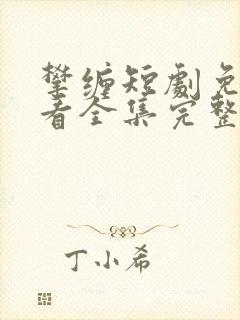 攀缠短剧免
看全集完整
丁小希